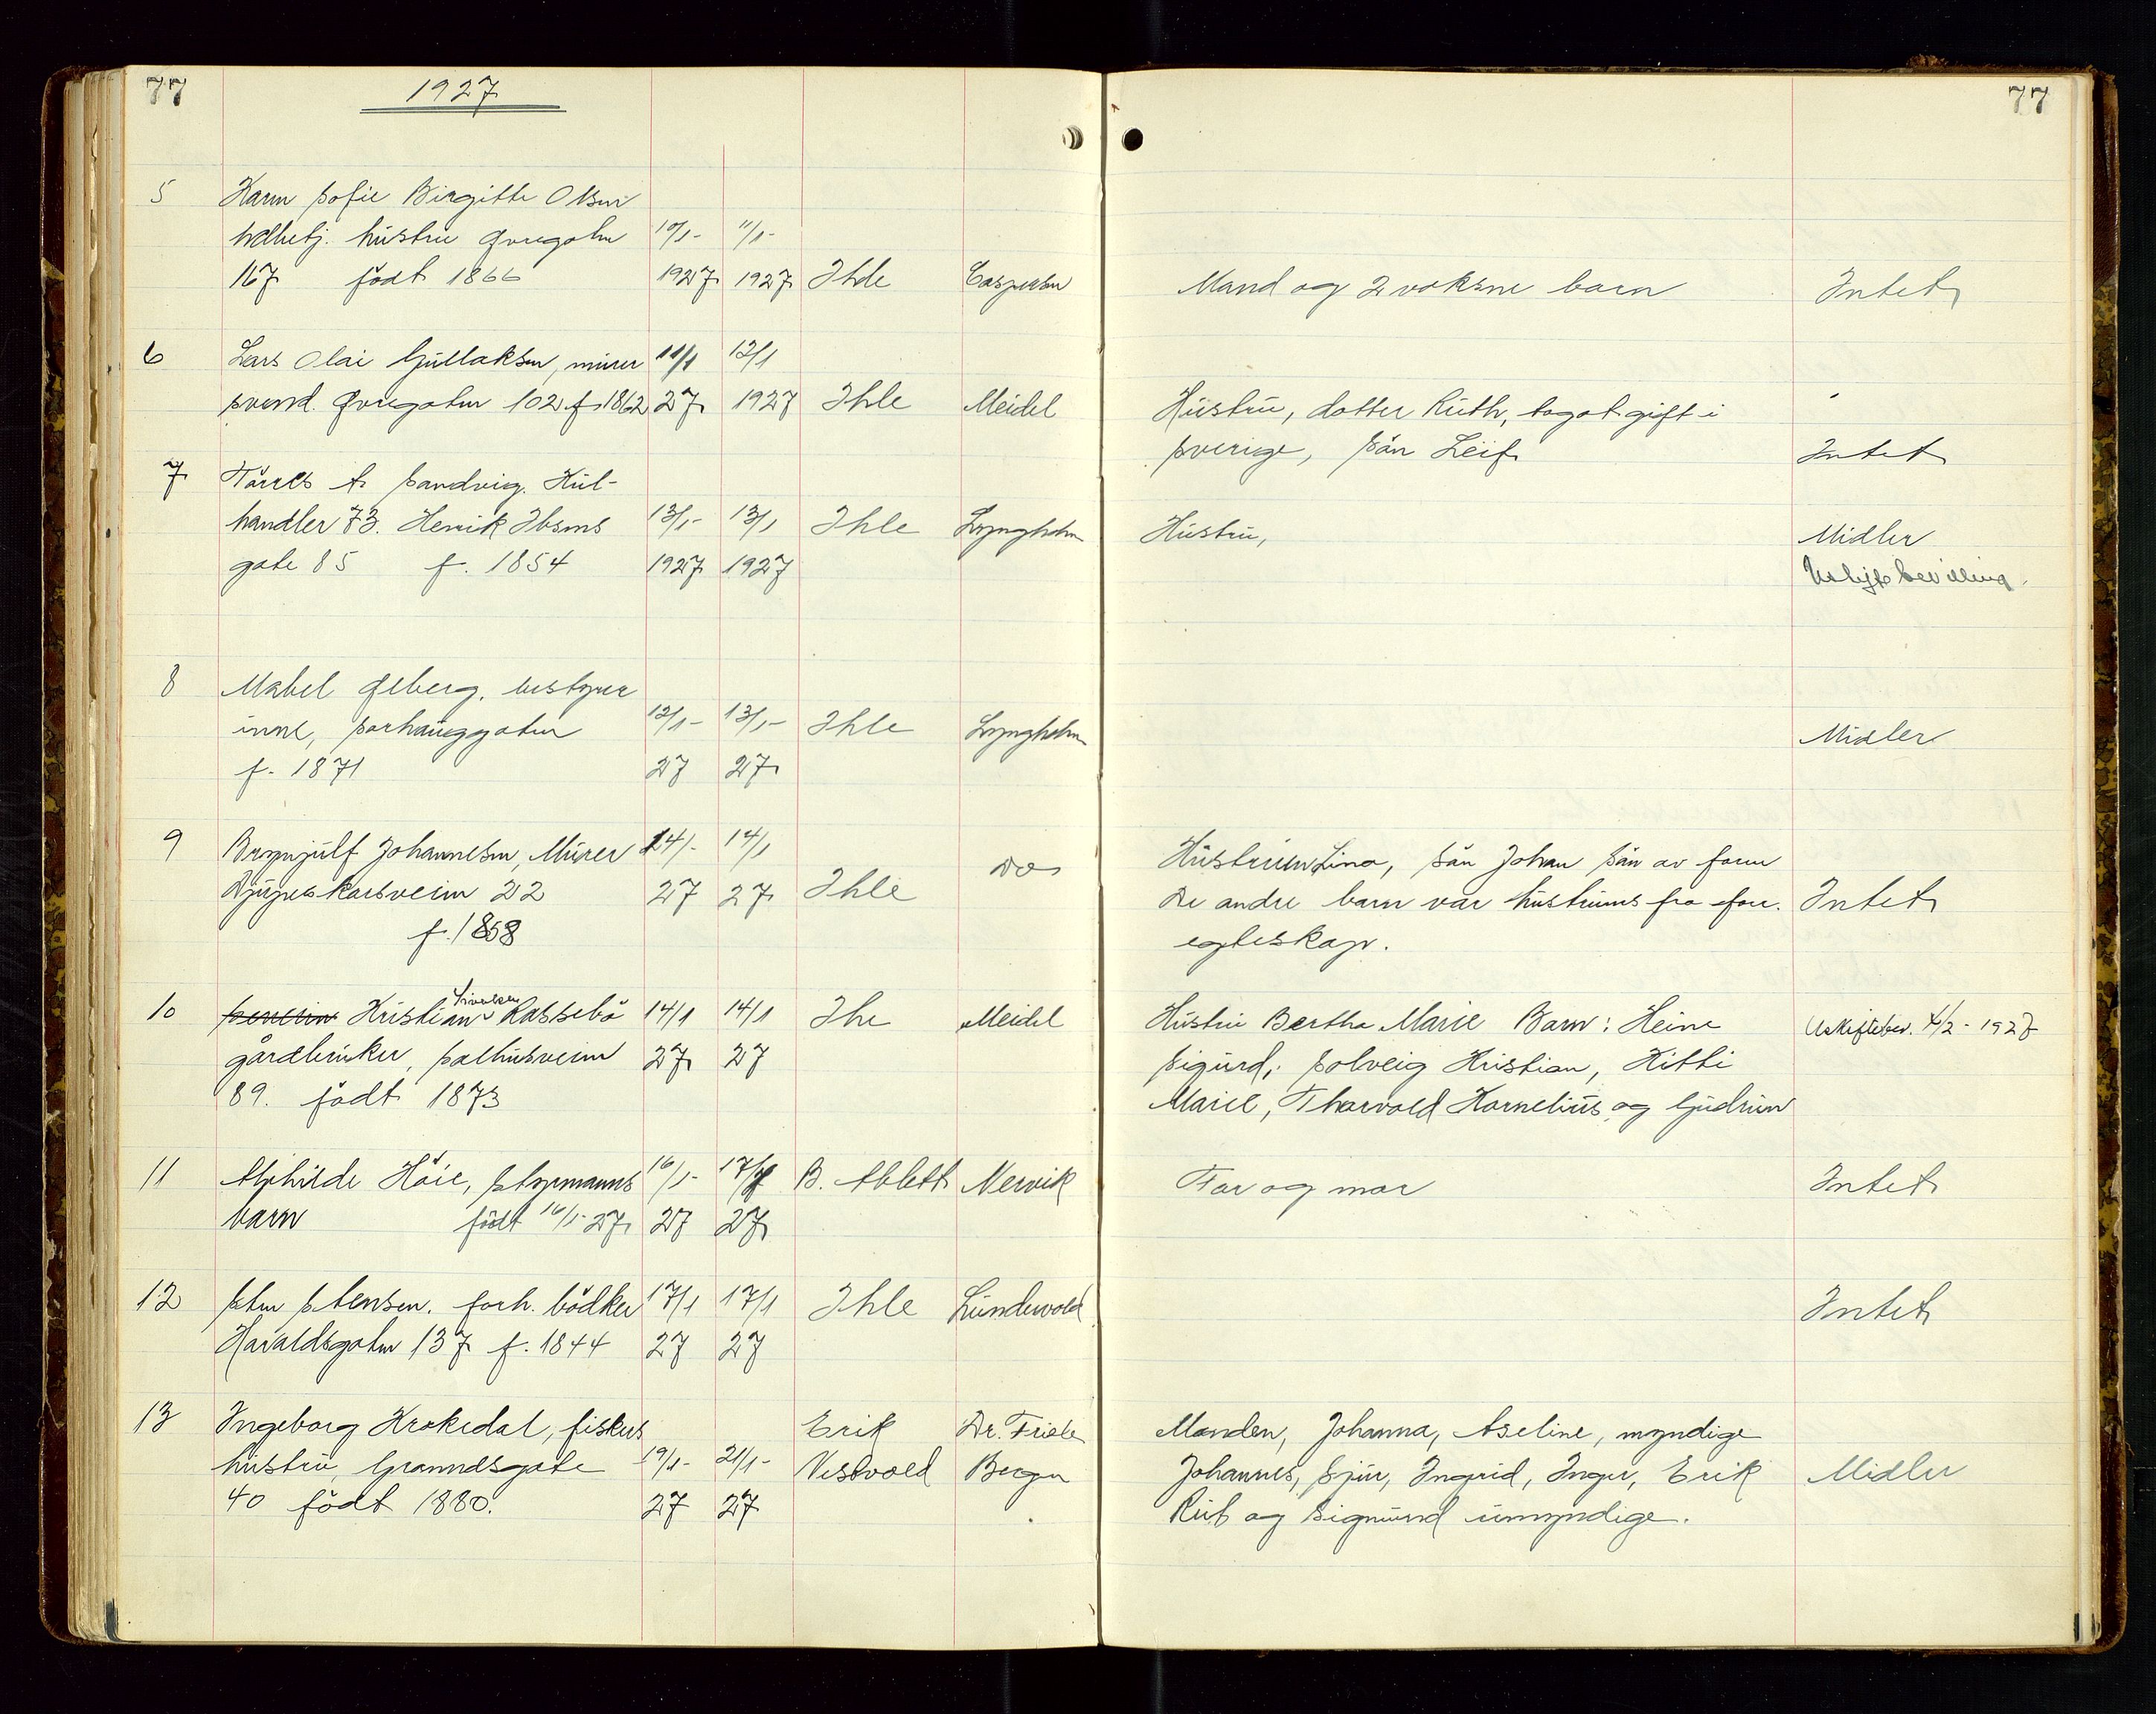 77
1927
77
5 Karen Sofie Birgitte Olsen
hustru Øvregaten 10/1- 11/1-
167 født 1866 1927 1927 Ihle Caspersen Mand og 2 voksne barn Intet
6 Lars Olai Gullaksen, murer 11/1 12/1
svend. Øvregaten 102 f. 1862 27 1927 Ihle Meidel Hustru, datter Ruth, gift i
Sverige, sön Leif Intet
7 Törres A. Sandvig. Kul-
handler 73. Henrik Ibsens 13/1- 13/1 Ihle Lyngholm Hustru, Midler
gate 85 f. 1854 1927 1927 Uskiftebevilling.
8 Mabel Øberg, bestyrer
inne, Sørhauggaten 12/1- 13/1- Ihle Lyngholm Midler
f. 1871 27 27
9 Brynjulf Johannesen, Murer 14/- 14/1 Do Hustruen Lina, sön Johan sön av foren
Djupaskarsveien 22 27 27 Ihle De andre barn var hustruens fra forr. Intet
f. 1858 egteskap.
10 Kristian Sivertsen Rossebö 14/1 14/1 Ihe Meidel Hustru Bertha Marie Barn: Heine Uskiftebev. 4/2 - 1927
gårdbruker, Salhusveien 27 27 Sigurd, Solveig Kristian, Kitti
89. födt 1873 Marie, Thorvald Kornelius og Gudrun
11 Alfhilde Höie, Styrmanns 16/1- 17/1 B. Ablett Nervik Far og mor Intet
barn födt 16/1- 27 27 27
12 Sten Stensen. forh. bödker 17/1 17/1 Ihle Lundevold Intet
Haraldsgaten 137 f. 1844 27 27
13 Ingeborg Krokedal, fiskers Erik Dr. Friele Manden, Johanna, Aseline, myndige
hustru, Grannesgate 19/1- 21/1- Vestvold Bergen Johannes, Sjur, Ingrid, Inger, Erik Midler
40 födt 1880. 27 27 Rut og Sigmund umyndige.